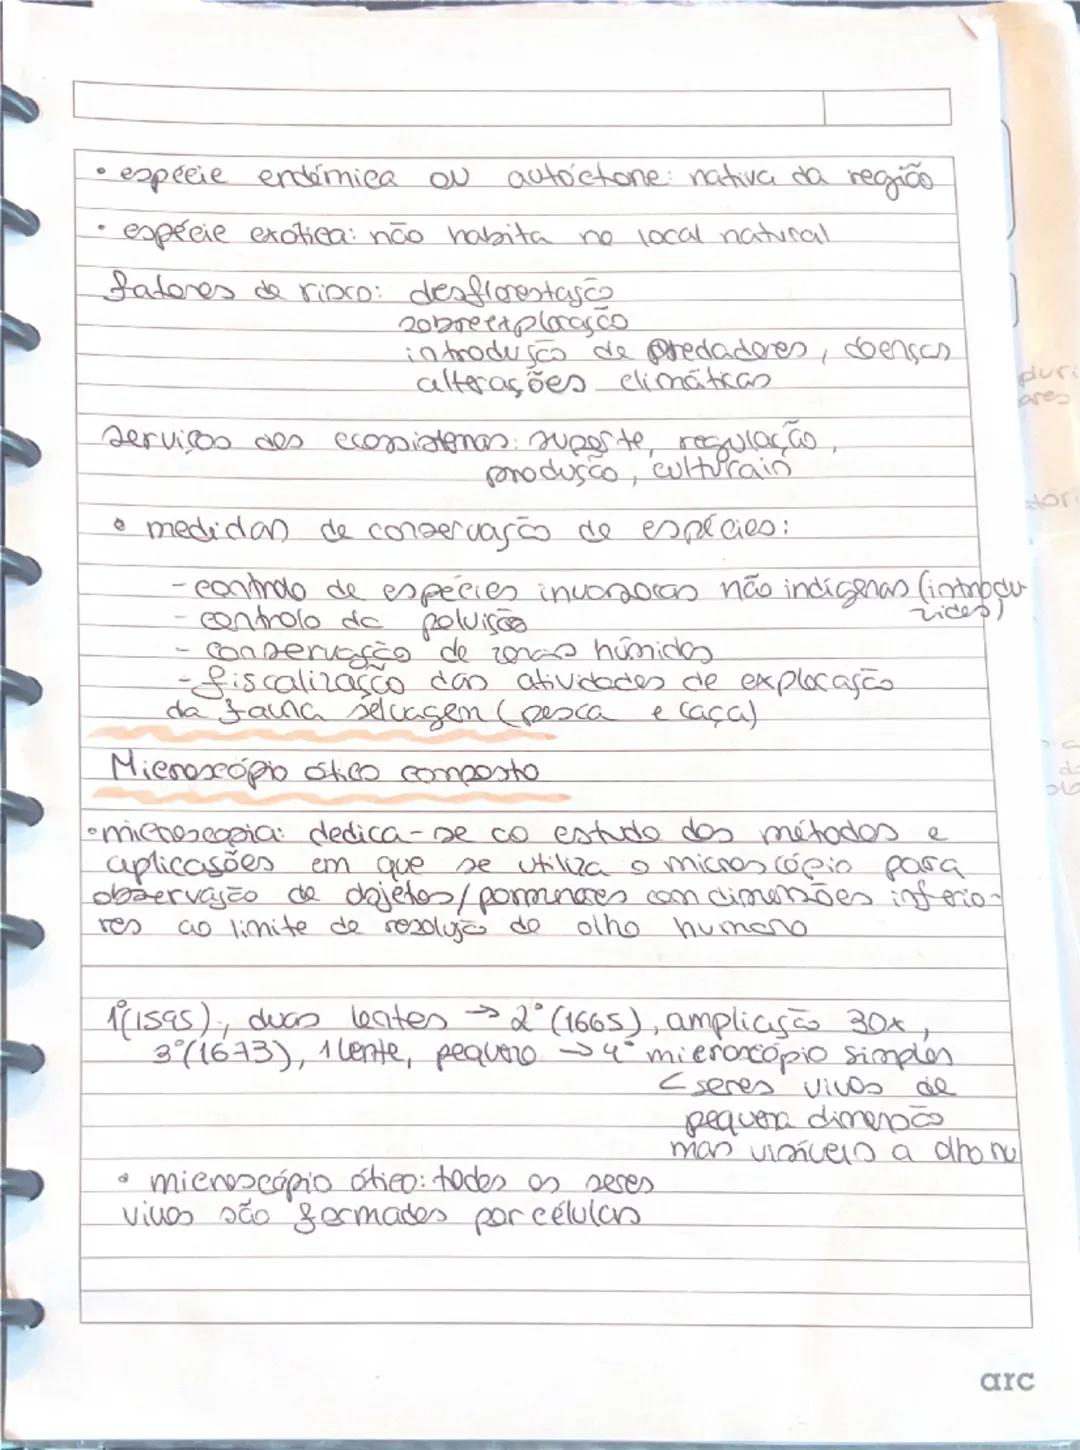 • espécie endémica ou autóctone: nativa da região
• espécie exotica: não habita no local natural
fatores de risco: desflorestação
sobreexploração
introdução de predadores, doenças
alterações climáticas
serviços dos ecossistemas: suporte, regulação,
produção, culturais
• medidas de conservação de espécies:
- controlo de espécies invasoras não indígenas (introdu
zidas)
- controlo da poluição
- conservação de zonas húmidas
- fiscalização das atividades de exploração
da fauna selvagem (pesca e caça)
Microscópio ótico composto
• microscopia: dedica-se ao estudo dos métodos e
aplicações em que se utiliza o microscópio para
observação de objetos/pormenores com dimensões inferio-
res ao limite de resolução do olho humano
1º(1595), duas lentes → 2º (1665), ampliação 30x,
3º(1673), 1 lente, pequeno → 4º microscópio simples
< seres vivos de
pequena dimensão
mas visíveis a olho nu
• microscópio ótico: todos os seres
vivos são formados por células
arc